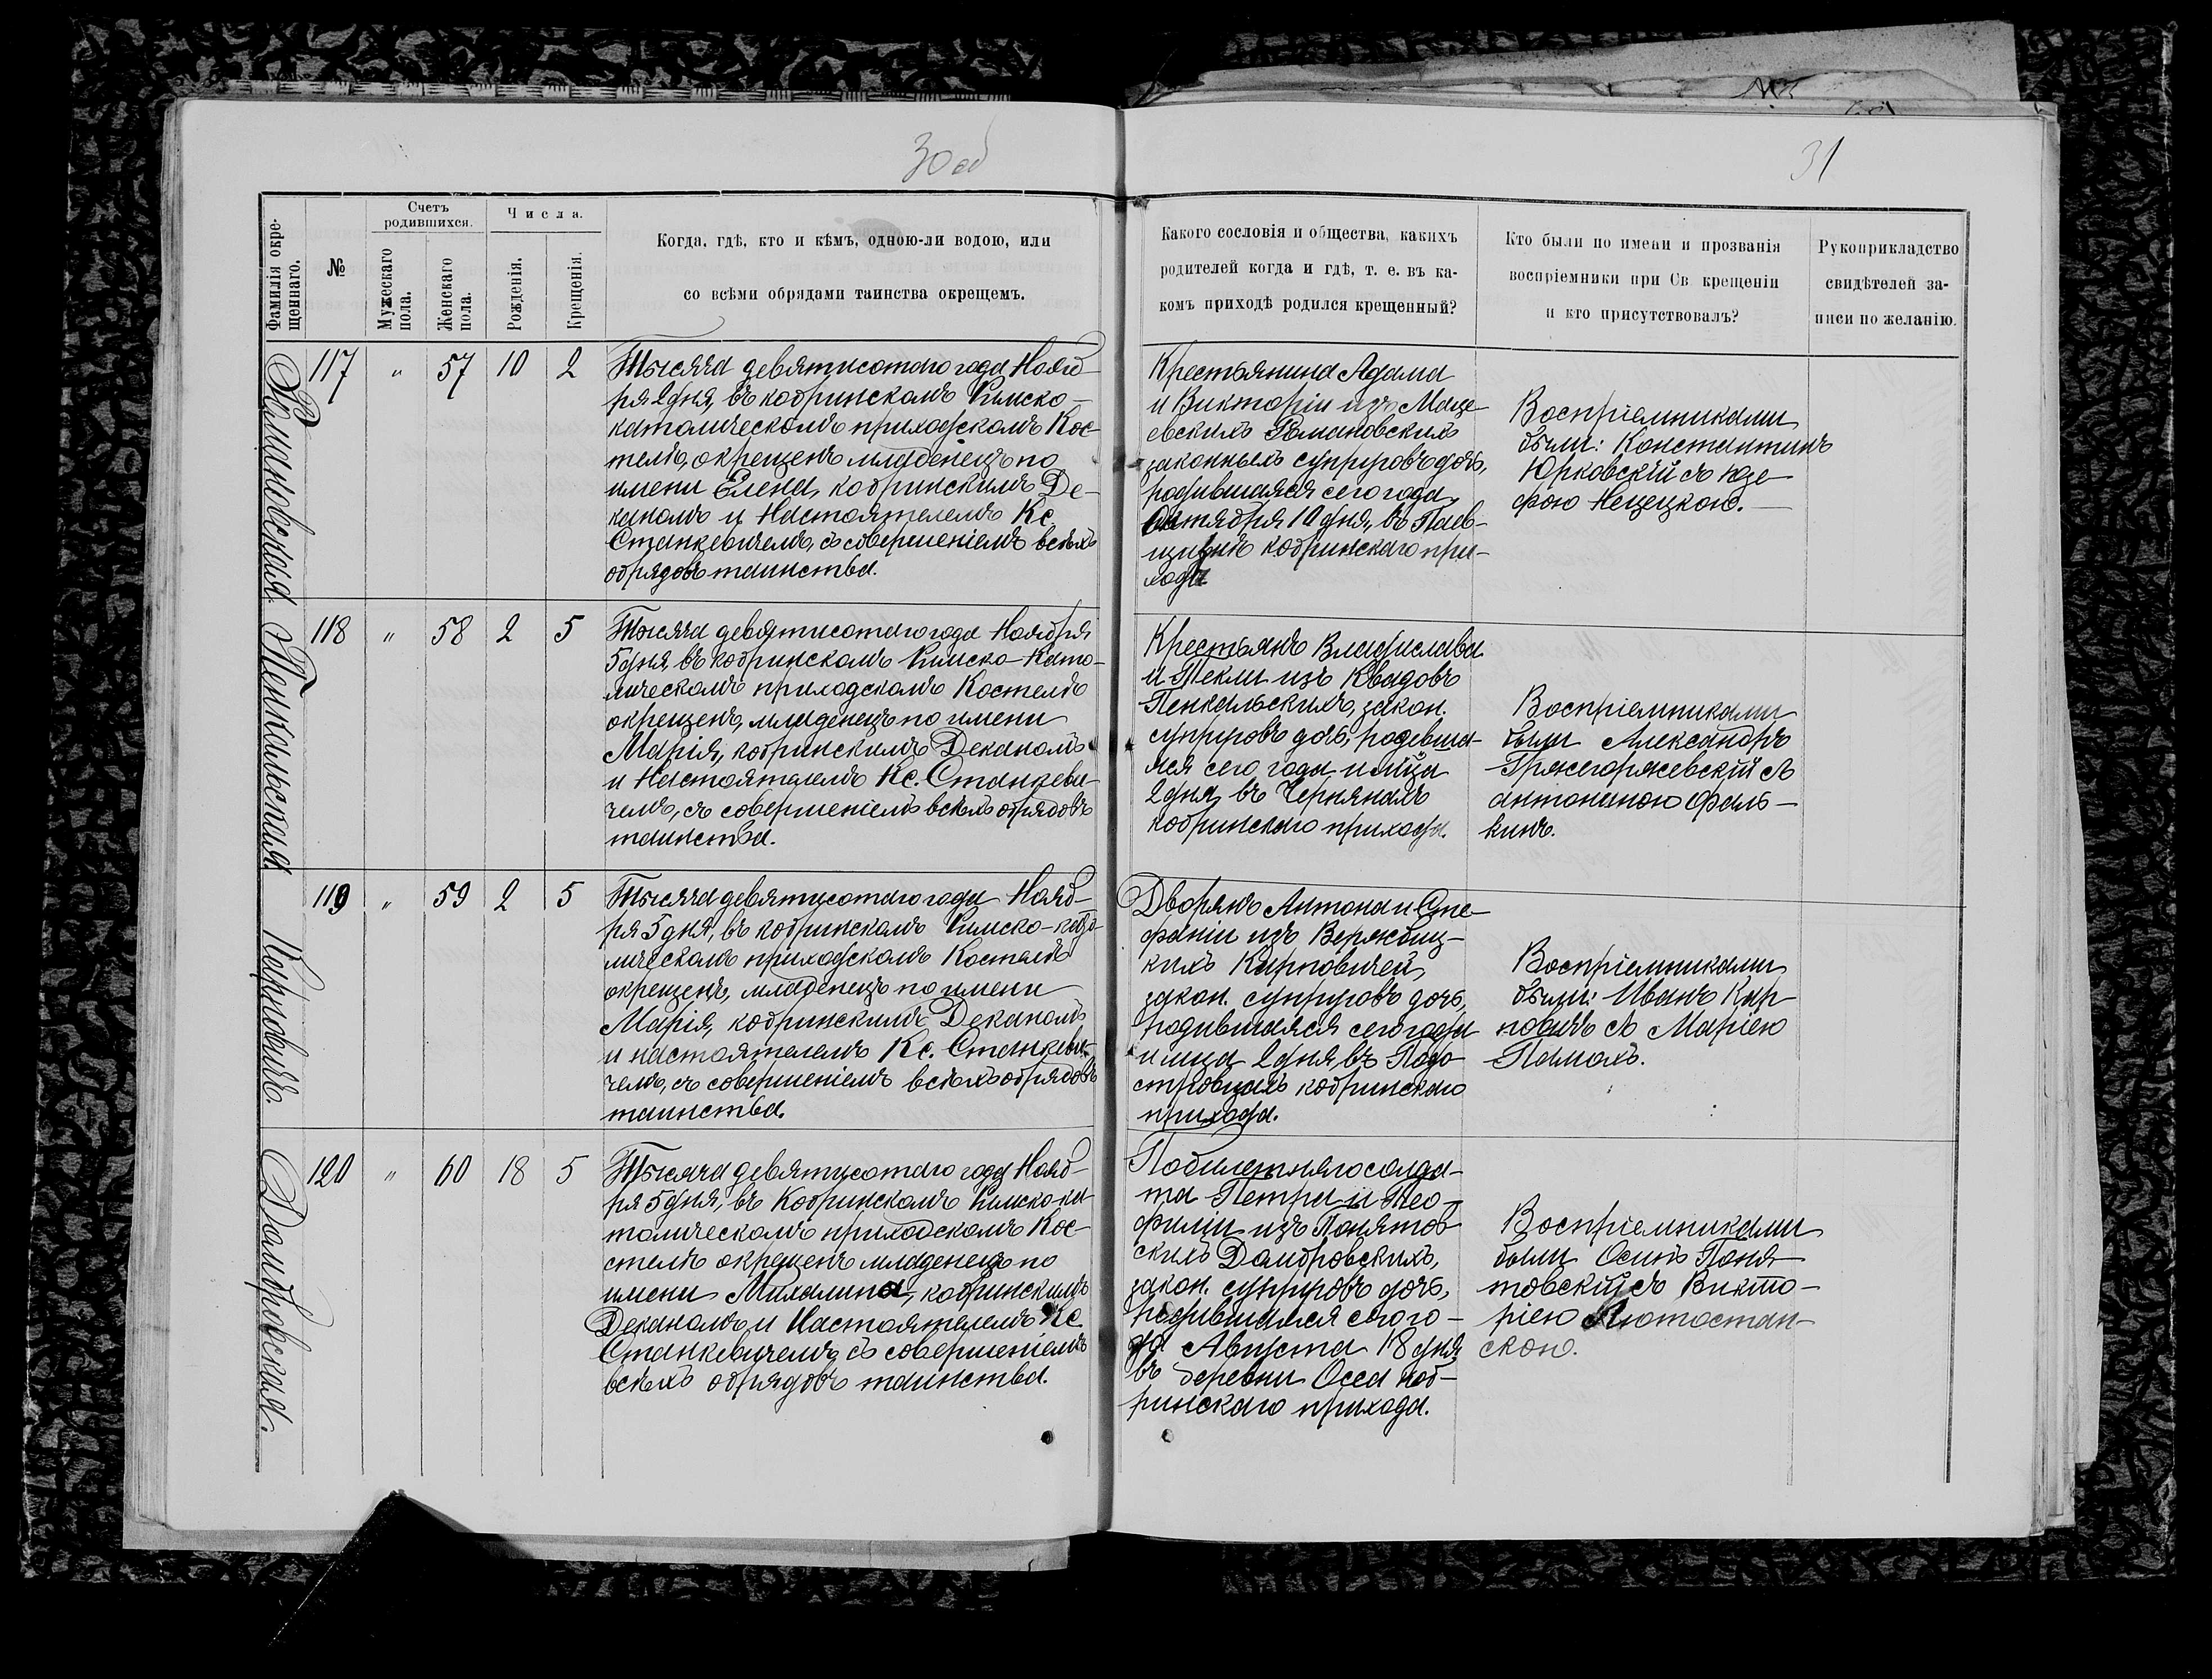 30 об
31
Фамилія окре-
щеннаго.
№
Счетъ
родившихся.
Мужескаго
пола.
Женскаго
пола.
Числа.
Рожденія.
Крещенія.
Когда, гдѣ, кто и кѣмъ, одною-ли водою, или
со всѣми обрядами таинства окрещемъ.
Какого сословія и общества, какихъ
родителей когда и гдѣ, т. е. въ ка-
комъ приходѣ родился крещенный?
Кто были по имени и прозванія
воспріемники при Св крещеніи
и кто присутствовалъ?
Рукоприкладство
свидѣтелей за-
писи по желанію.
Романовская.
117 " 57 10 2
Тысяча девятисотаго года Нояб-
ря 2 дня, въ кобринскомъ Римско-
католическомъ приходскомъ Кос-
телѣ, окрещенъ младенецъ по
имени Елена, кобринскимъ Де-
каномъ и Настоятелемъ Кс.
Станкевичемъ, съ совершеніемъ всѣхъ
обрядовъ таинства.
Крестьянина Адама
и Викторіи изъ Маце-
евскихъ Романовскихъ
законныхъ супруговъ дочь,
родившаяся сего года,
Октября 10 дня, въ
кобринскаго при-
хода
Воспріемниками
были: Константинъ
Юрковскій съ Юзе-
фою Нецецкою.
Пенкальская.
118 " 58 2 5
Тысяча девятисотаго года Ноября
5 дня въ кобринскомъ Римско-Като-
лическомъ приходскомъ Костелѣ
окрещенъ, младенецъ по имени
Марія, кобринскимъ Деканомъ
и Настоятелемъ Кс. Станкеви-
чемъ, съ совершеніемъ всѣхъ обрядовъ
таинства.
Крестьянъ Владислава
и Текли изъ Квадовъ
Пенкальскихъ, закон.
супруговъ дочь, родевша-
яся сего года и мца
2 дня, въ Чернянахъ
кобринскаго прихода.
Воспріемниками
были Александръ
Гржегоржевскій съ
антониною Фаль-
кинъ.
Карповичъ.
119 " 59 2 5
Тысяча девятисотаго года Нояб-
ря 5 дня, въ кобринскомъ Римско-като-
лическомъ приходскомъ Костелѣ
окрещенъ, младенецъ по имени
Марія, кобринскимъ Деканомъ
и настоятелемъ Кс. Станкеви-
чемъ, съ совершеніемъ всѣхъ обрядовъ
таинства.
Дворянъ Антона и Сте-
фаніи изъ Вержбиц-
кихъ Карповичей,
закон. супруговъ дочь,
родившаяся сего года
и мца 2 дня, въ
кобринскаго
прихода.
Воспріемниками
были: Иванъ Кар-
повичъ съ Маріею
Домбровская.
120 " 60 18 5
Тысяча девятисотаго года Нояб-
ря 5 дня, въ Кобринскомъ Римскока-
толическомъ приходскомъ Кос-
телѣ окрещенъ младенецъ по
имени Михалина, кобринскимъ
Деканомъ и Настоятелемъ Кс.
Станкевичемъ, съ совершеніемъ
всѣхъ обрядовъ таинства.
солда-
та Петра и Тео-
филіи изъ Понятов-
скихъ Домбровскихъ,
закон. супруговъ дочь,
родившаяся сего го-
да Августа 18 дня
въ деревни Осса коб-
ринскаго прихода.
Воспріемниками
были Осипъ Поня-
товскій съ Викто-
ріею Лютостан-
скою.